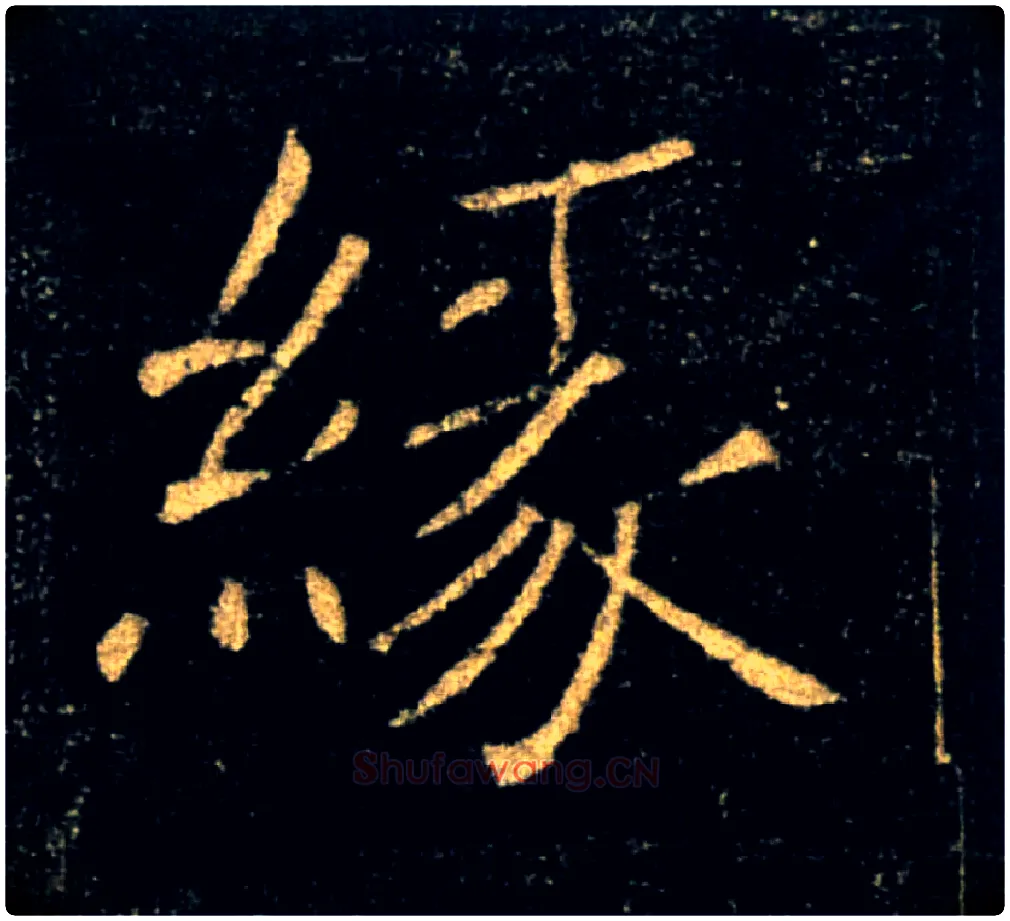 緣
Shufawang.CN